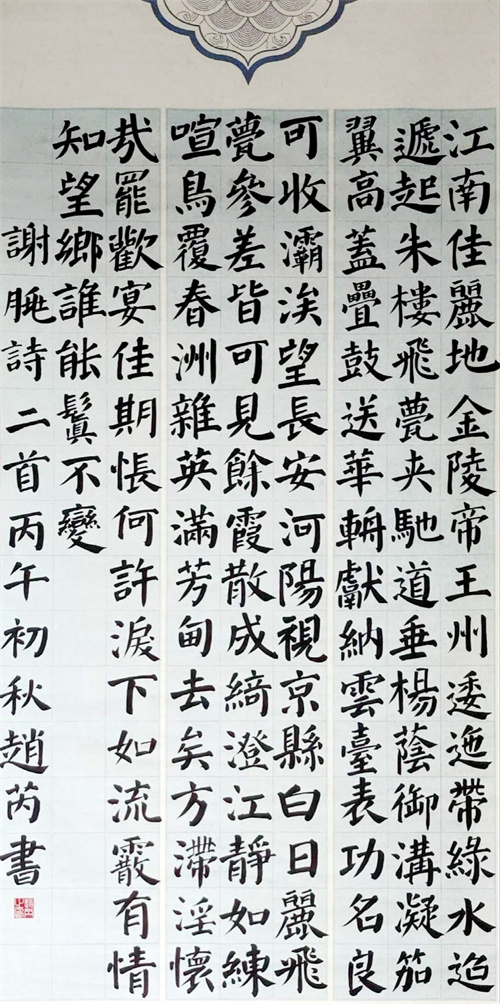 江南佳麗地金陵帝王州逶迤帶綠水迢
遞起朱樓飛甍夹馳道垂楊蔭御溝凝笳
翼高蓋疊鼓送華輈獻納雲臺表功名良
可收灞涘望長安河陽視京縣白日麗飛
甍參差皆可見餘霞散成綺澄江靜如練
喧鳥覆春洲雜英滿芳甸去矣方滯淫懷
哉罷歡宴佳期悵何許淚下如流霰有情
知望鄉誰能鬒不變
謝朓詩二首丙午初秋趙芮書